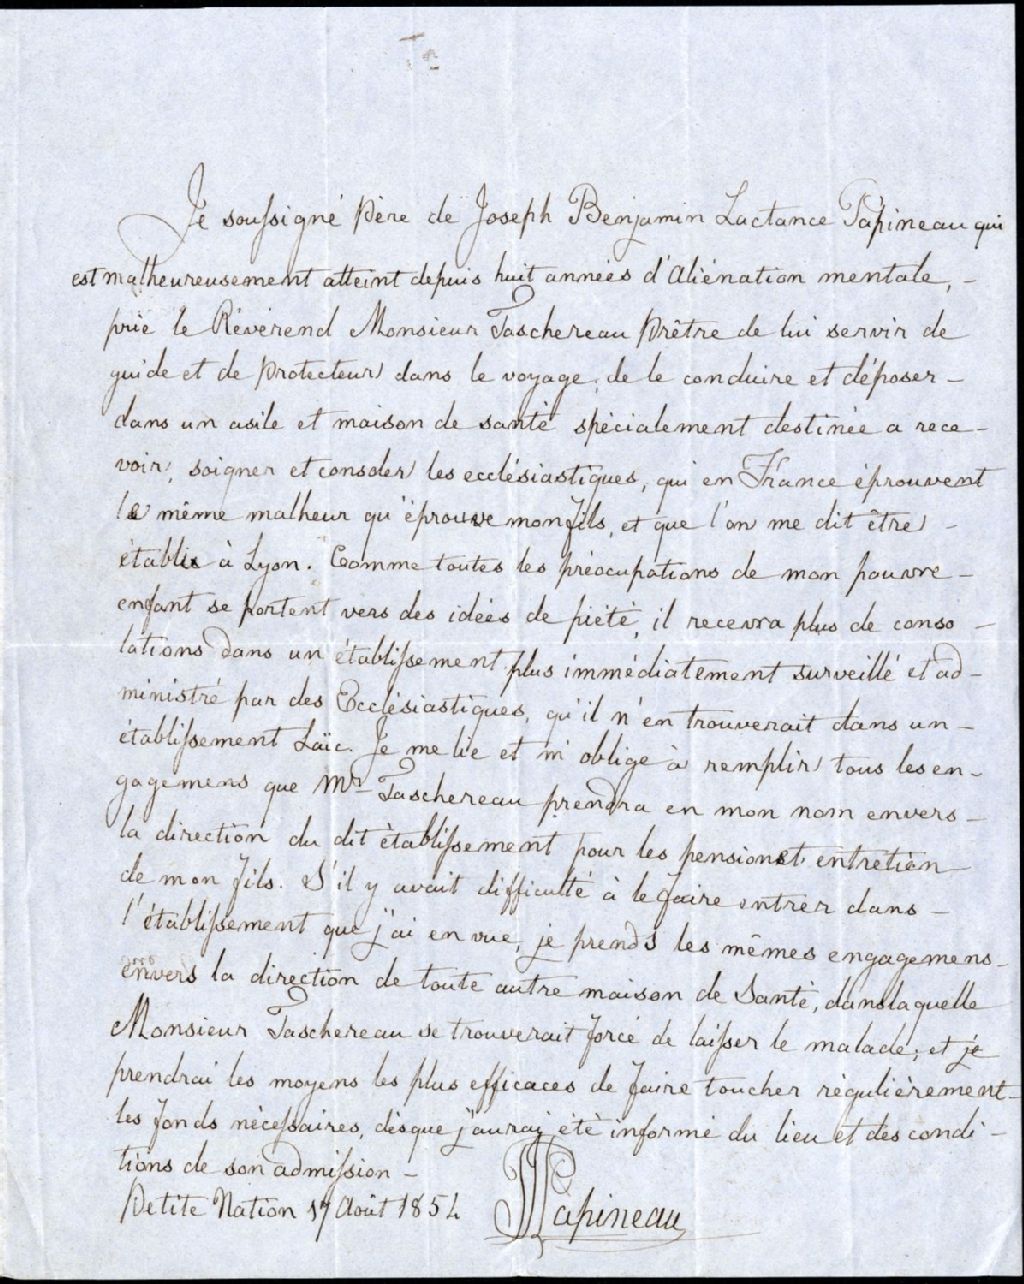 Je soussigné Père de Joseph Benjamin Lactance Papineau qui
est malheureusement atteint depuis huit années d'Aliénation mentale, -
prie le Révérend Monsieur Taschereau Prêtre de lui servir de
guide et de Protecteur dans le voyage, de le conduire et déposer -
dans un asile et maison de santé spécialement destinée a rece-
voir, soigner et consoler les ecclésiastiques, qui en France éprouvent
le même malheur qu'éprouve mon fils, et que l'on me dit être -
établie à Lyon. Comme toutes les préocupations de mon pauvre -
enfant se portent vers des idées de piété, il recevra plus de conso-
lations dans un établissement plus immédiatement surveillé et ad-
ministré par des Ecclésiastiques, qu'il n'en trouverait dans un -
établissement Laïc. Je me lie et m'oblige à remplir tous les en-
gagemens que Mr Taschereau prendra en mon nom envers -
la direction du dit établissement pour les pension et entretien -
de mon fils. S'il y avait difficulté à le faire entrer dans -
l'établissement que j'ai en vue, je prends les mêmes engagemens -
envers la direction de toute autre maison de Santé, dans laquelle
Monsieur Taschereau se trouverait forcé de laisser le malade; et je
prendrai les moyens les plus efficaces de faire toucher régulièrement -
les fonds nécessaires, dès que j'auray été informé du lieu et des condi-
tions de son admission -
Petite Nation 17 Août 1854 LJPapineau